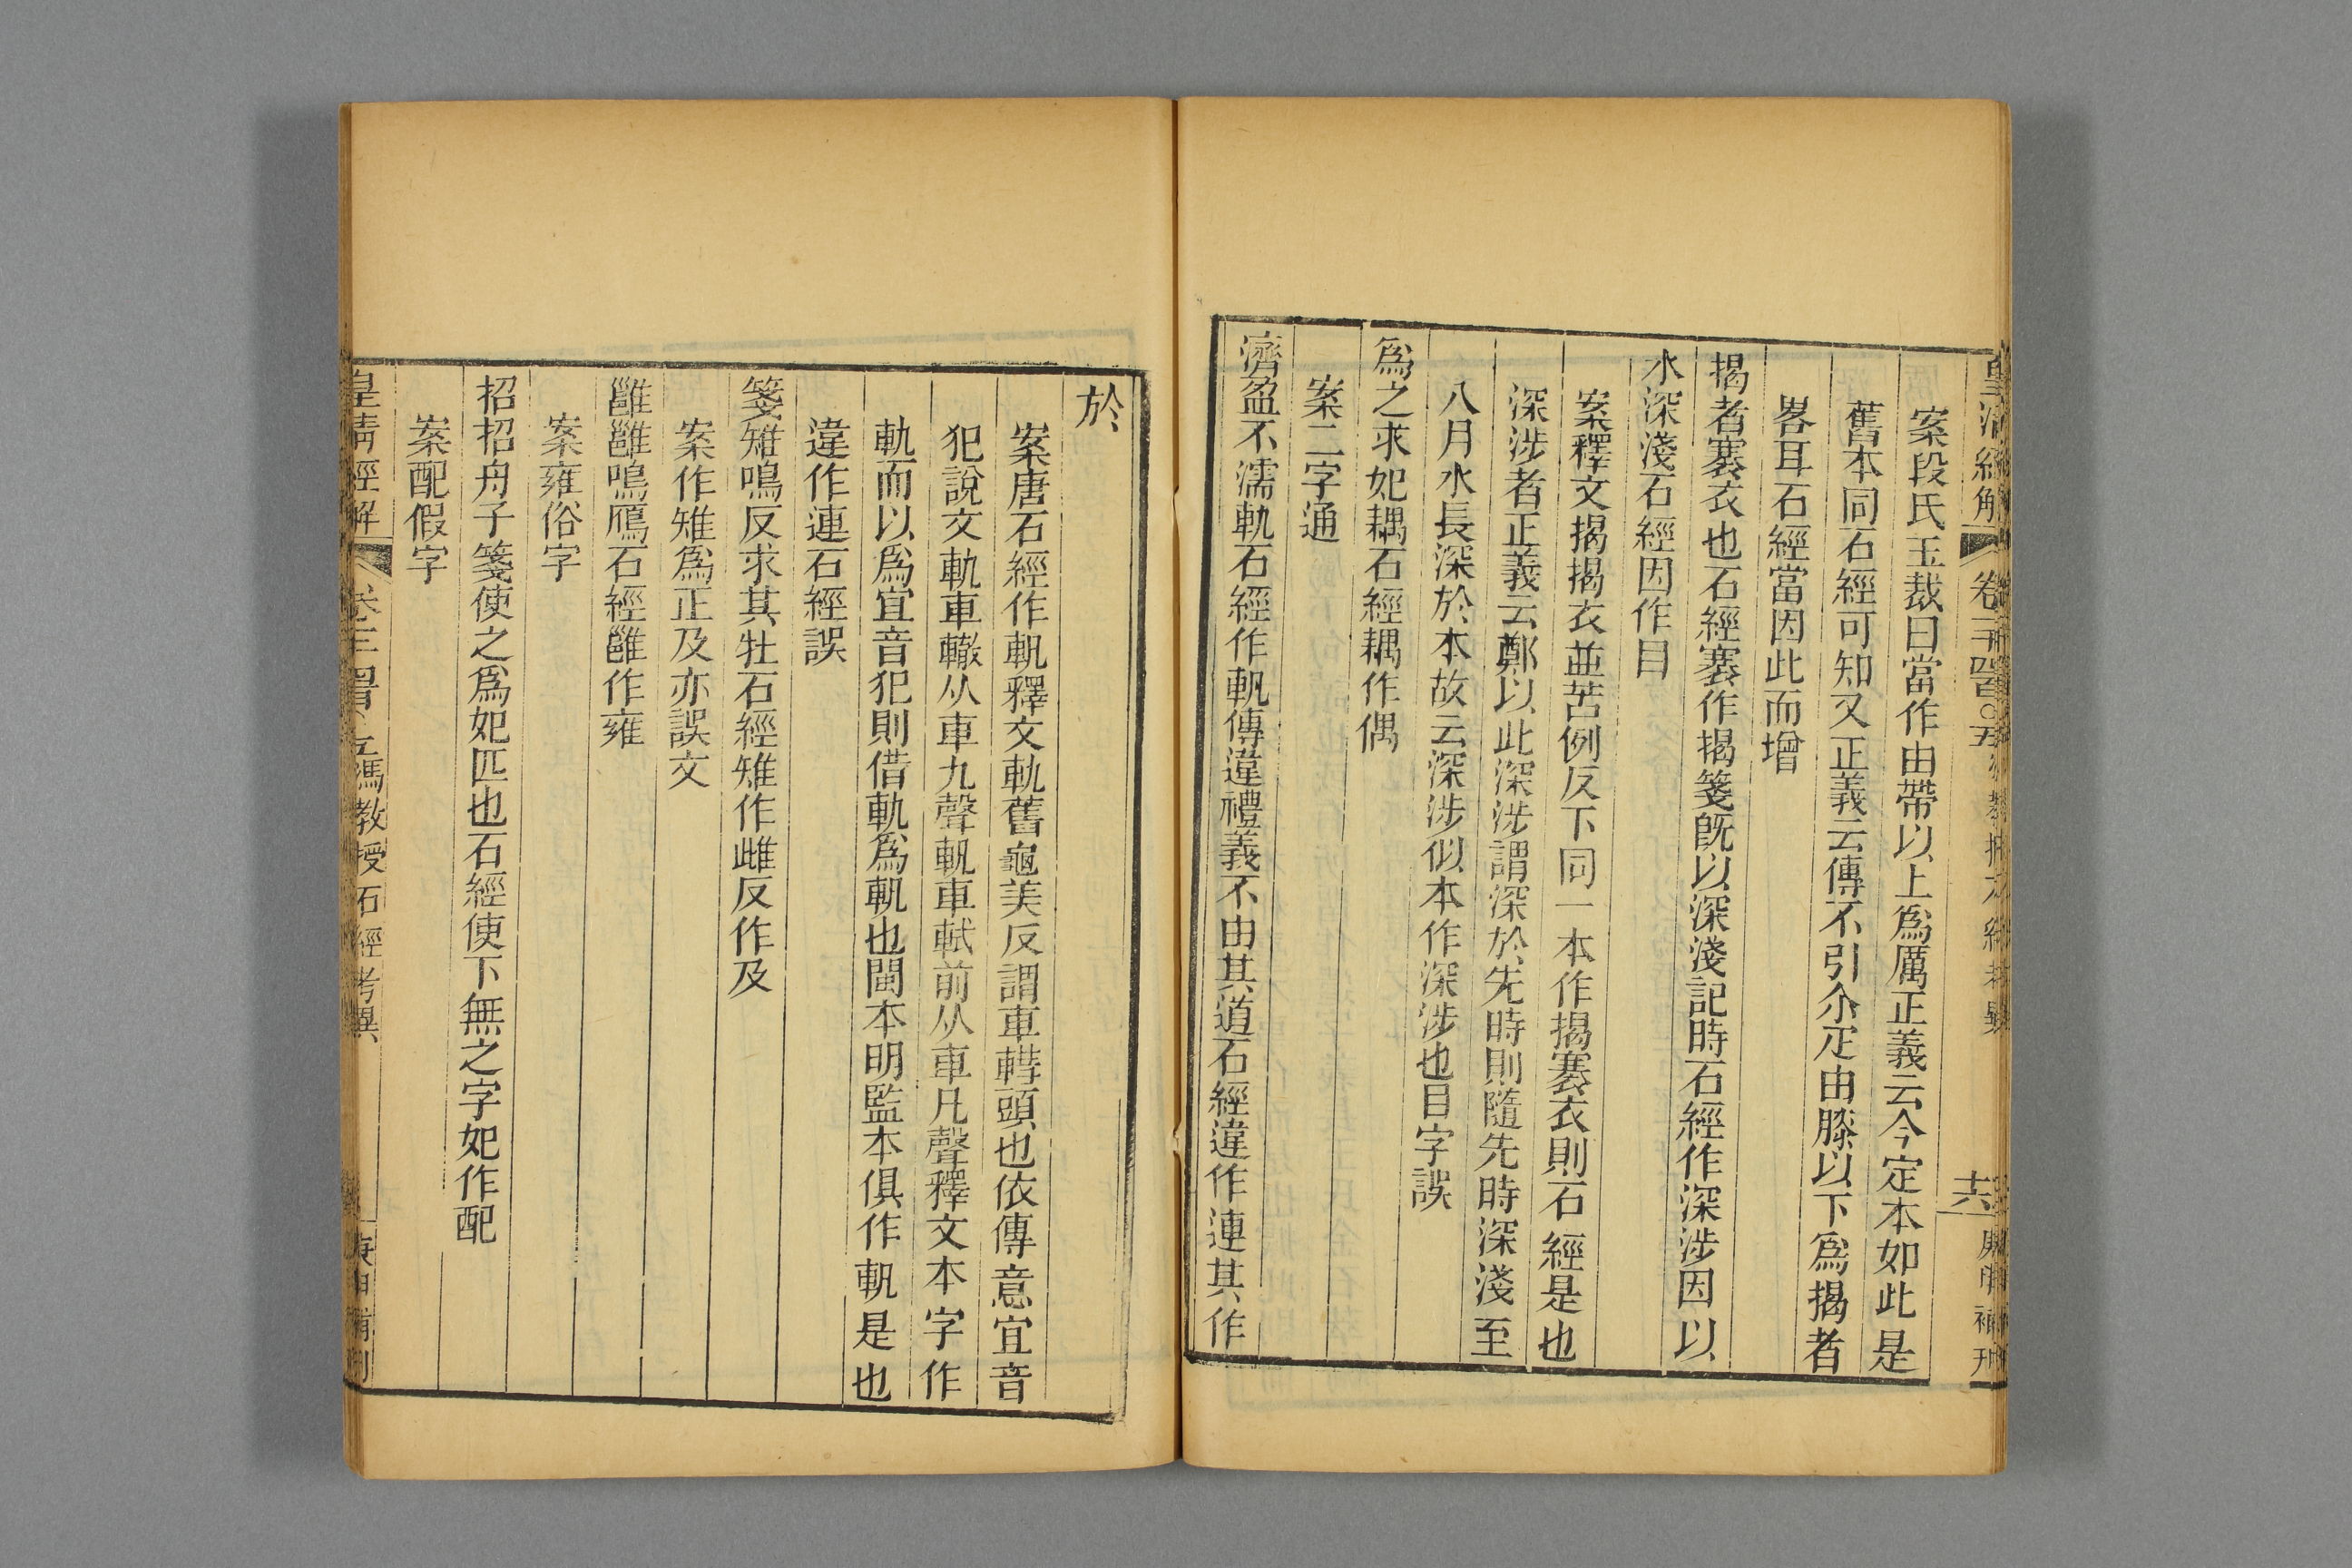 案段氏玉裁曰當作由帶以上爲厲正義云今定本如此是
舊本同石經可知又正義云傳不引尒疋由膝以下爲揭者
畧耳石經當因此而增
揭者褰衣也石經褰作揭箋旣以深淺記時石經作深涉因以
水深淺石經因作目
案釋文揭揭衣並苦例反下同一本作揭褰衣則石經是也
深涉者正義云鄭以此深涉謂深於先時則隨先時深淺至
八月水長深於本故云深涉似本作深涉也目字誤
爲之求妃耦石經耦作偶
案二字通
濟盈不濡軌石經作軓傳違禮義不由其道石經違作連其作
於
案唐石經作軓釋文軌舊龜美反謂車轊頭也依傳意宜音
犯說文軌車轍从車九聲軓車軾前从車凡聲釋文本字作
軌而以爲宜音犯則借軌爲軓也閩本明監本俱作軓是也
違作連石經誤
箋雉鳴反求其牡石經雉作雌反作及
案作雉爲正及亦誤文
雝雝鳴鴈石經雝作雍
案雍俗字
招招舟子箋使之爲妃匹也石經使下無之字妃作配
案配假字
皇清經解
馮教授石經考異
庚申補刊